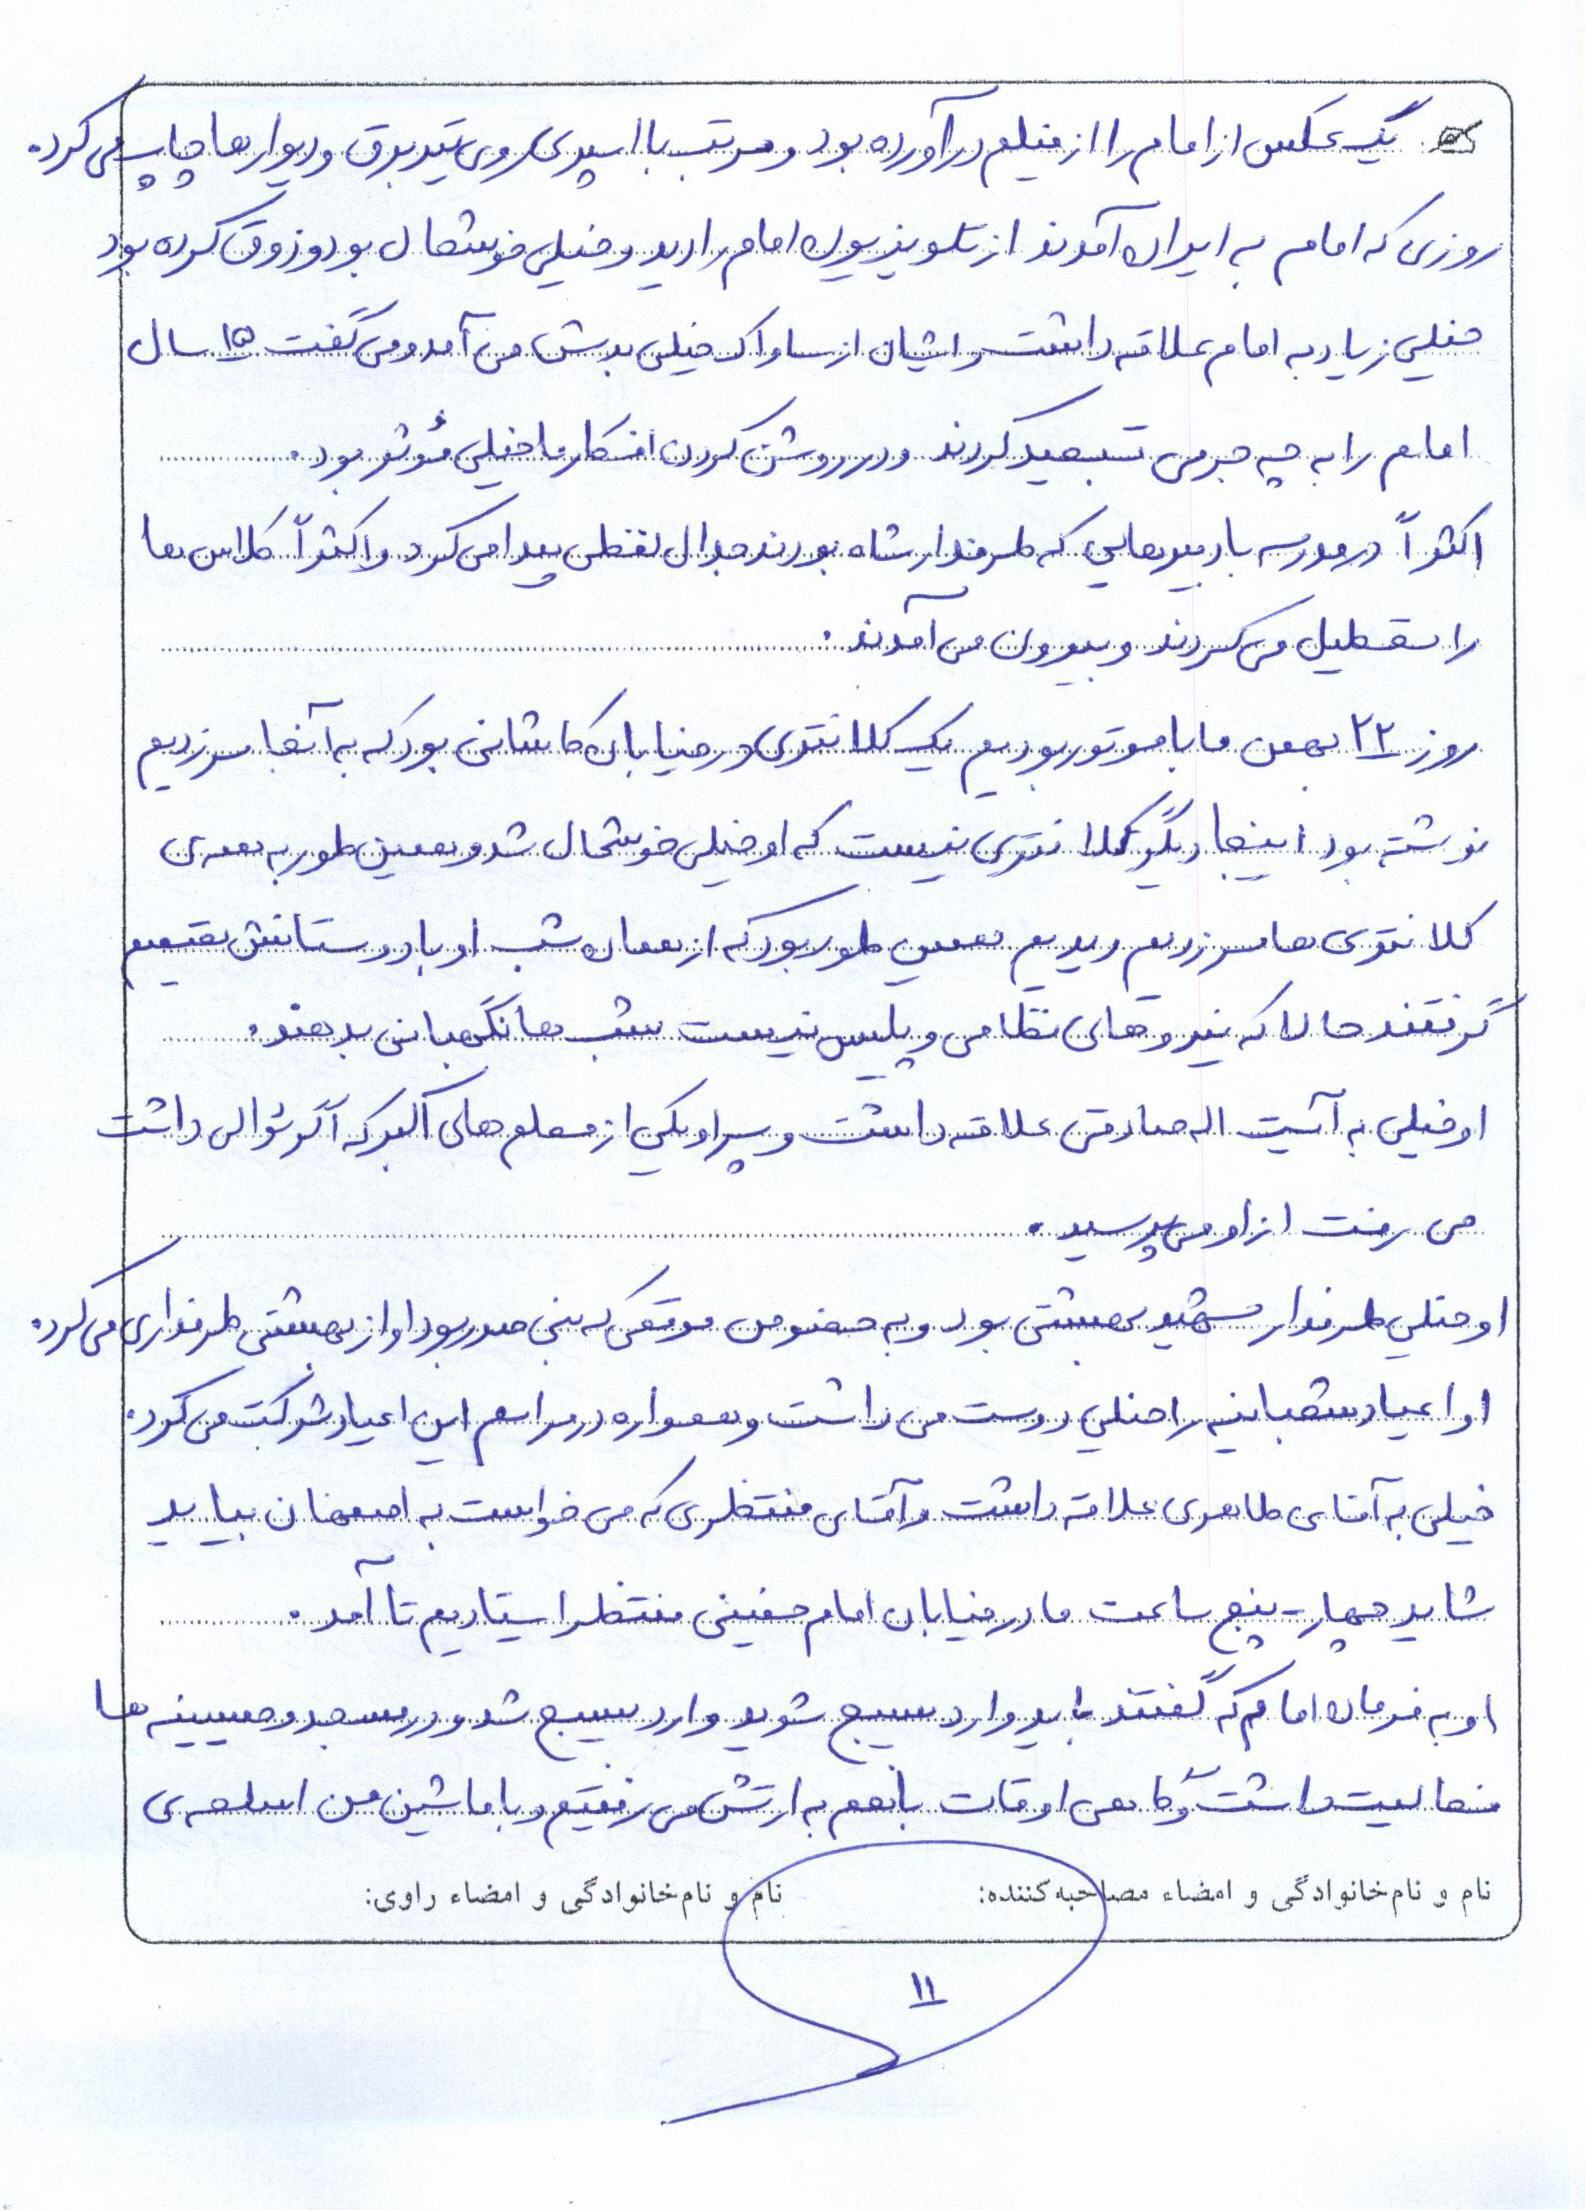 یک عکس از امام را از فیلم درآورده بود و مرتب با اسپری روی تیر برق و دیوارها چاپ می کرد.
روزی که امام به ایران آمدند از تلویزیون امام را دید و خیلی خوشحال بود و زوق کرده بود
خیلی زیاد به امام علاقه داشت و ایشان از ساواک خیلی بدش می آمد و می گفت ۱۵ سال
امام را به چه جرمی تبعید کردند و در روشن کردن افکار ما خیلی مؤثر بود.
اکثراً در مدرسه با دبیرهایی که طرفدار شاه بودند جدال لفظی پیدا می کرد و اکثراً کلاس ها
را تعطیل می کردند و بیرون می آمدند.
روز ۲۲ بهمن ما با موتور بودیم یک کلانتری در خیابان کاشانی بود که به آنجا سر زدیم
نوشته بود اینجا دیگر کلانتری نیست که او خیلی خوشحال شد و همین طور به همه ی
کلانتری ها سر زدیم دیدیم همین طور بود که از همان شب او با دوستانش تصمیم
گرفتند حالا که نیروهای نظامی و پلیس نیست شب ها نگهبانی بدهند.
او خیلی به آیت اله صادقی علاقه داشت و پسر او یکی از معلم های اکبر که اگر سؤالی داشت
می رفت از او می پرسید.
او خیلی طرفدار شهید بهشتی بود و به خصوص موقعی که بنی صدر بود او از بهشتی طرفداری می کرد.
او اعیاد شعبانیه را خیلی دوست می داشت و همواره در مراسم این اعیاد شرکت می کرد.
خیلی به آقای طاهری علاقه داشت و آقای منتظری که می خواست به اصفهان بیاید
شاید چهار- پنج ساعت ما در خیابان امام خمینی منتظر ایستادیم تا آمد.
او به فرمان امام که گفتند باید وارد بسیج شوید وارد بسیج شد و در مسجد و حسینیه ها
فعالیت داشت و گاهی اوقات با هم به ارتش می رفتیم و با ماشین من اسلحه ی
نام و نام خانوادگی و امضاء مصاحبه کننده: نام و نام خانوادگی و امضاء راوی:
۱۱